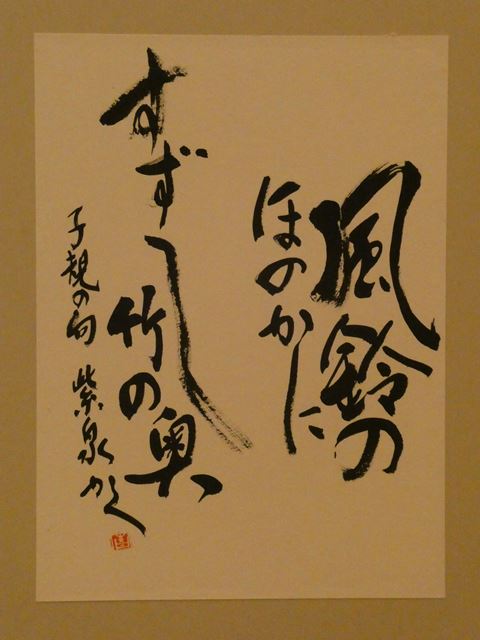 風鈴の
ほのかに
すずし
竹の奥
子規の句 紫泉かく